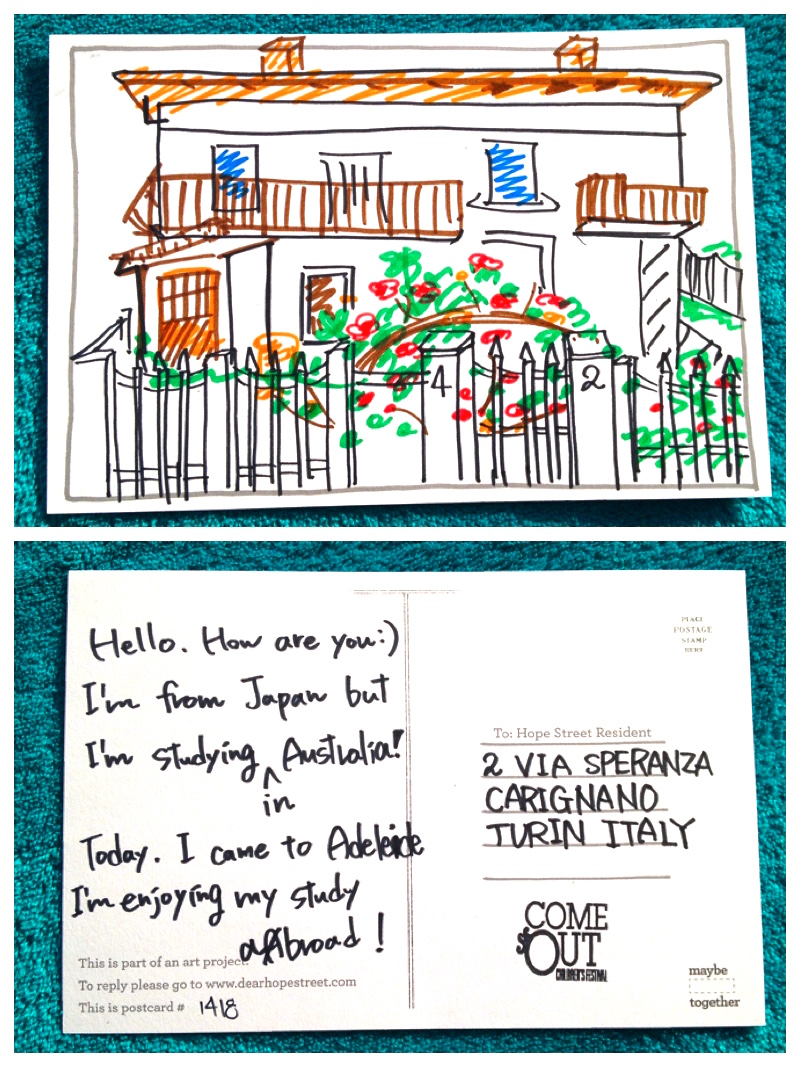 4
2
Hello. How are you:)
I'm from Japan but
I'm studying Australia!
in
Today. I came to Adeleide
I'm enjoying my study
abroad!
This is part of an art project.
To reply please go to www.dearhopestreet.com
This is postcard # 1418
PLACE
POSTAGE
STAMP
HERE
To: Hope Street Resident
2 VIA SPERANZA
CARIGNANO
TURIN ITALY
COME
OUT
CHILDREN'S FESTIVAL
maybe
together